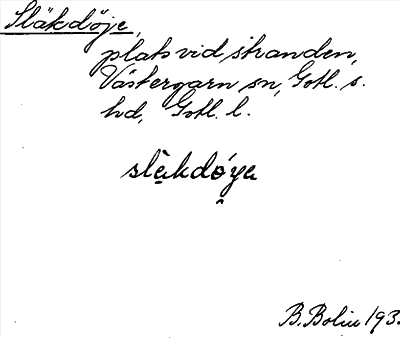 Släkdöje,
plats vid stranden,
Västergarn sn, Gotl. s.
hd, Gotl. l.
slàkdóya
B. Bolin 193